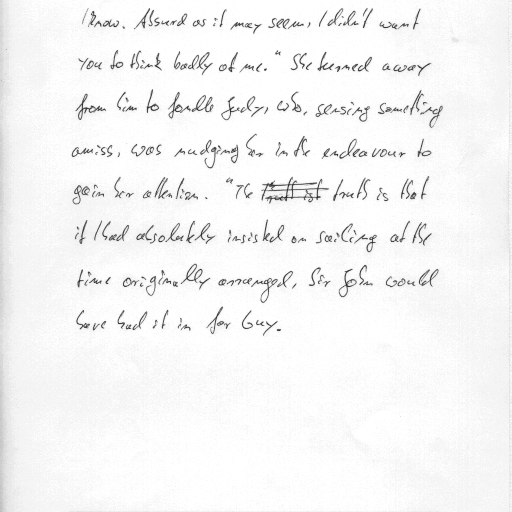 I know. Absurd as it may seem, I didn't want
you to think badly of me." She turned away
from him to fondle Judy, who, sensing something
amiss, was nudging her in the endeavour to
gain her attention. "The truth is that
if I had absolutely insisted on sailing at the
time originally arranged, Sir John would
have had it in for Guy.